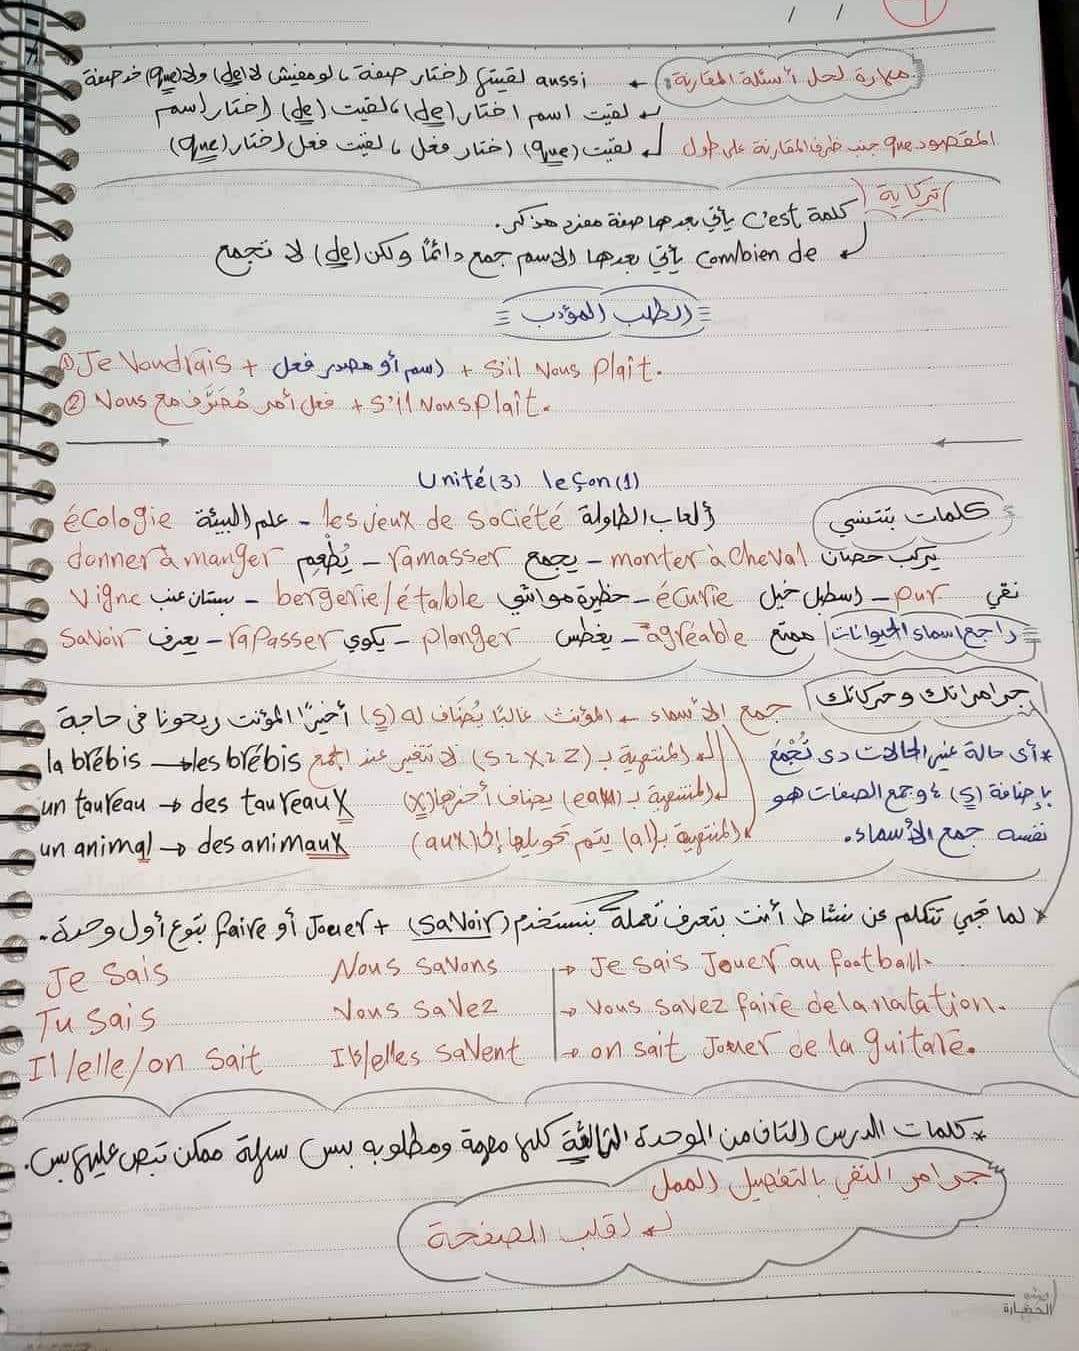 مهارة لحل أسئلة المقارنة: ← aussi لقيتها إختار صفة ، لو مفيش لا (de) ولا (que) خد صفة
لقيت اسم اختار (de) ، لقيت (de) إختار اسم
لقيت (que) اختار فعل ، لقيت فعل إختار (que)
المقصود que جنب ظرف المقارنة على طول
(تركاية)
كلمة c'est يأتي بعدها صفة مفرد مذكر.
combien de يأتي بعدها الاسم جمع دائمًا ولكن (de) لا تجمع
الطلب المؤدب
① Je Voudrais + إسم أو مصدر فعل + s'il Vous Plaît.
② فعل أمر مُصَرَّف مع Vous + s'il Vous plaît.
Unité (3) leçon (1)
كلمات بتتنسي
écologie علم البيئة - les jeux de société ألعاب الطاولة
donner à manger يُطْعِم - ramasser يجمع - monter à cheval يركب حصان
Vigne بستان عنب - bergerie/étable حظيرة مواشي - écurie اسطبل خيل - pur نقي
Savoir يعرف - rapasser يكوي - plonger يغطس - agréable ممتع
راجع اسماء الحيوانات
جرامراتك وحركاتك
جمع الأسماء ← المؤنث غالبًا يُضاف له (s) أخيرًا المؤنث ريحونا في حاجة
المنتهية بـ (s - x - z) لا تتغير عند الجمع la brébis → les brébis
المنتهية بـ (eau) يضاف أخرها (x) un taureau → des taureaux
المنتهية بـ (al) يتم تحويلها إلى (aux) un animal → des animaux
* أى حالة غير الحالات دى تُجْمَع
بإضافة (s) ، وجمع الصفات هو
نفسه جمع الأسماء.
* لما تيجي تتكلم عن نشاط أنت بتعرف تعمله بنستخدم (Savoir) + Jouer أو faire بتوع أول وحدة.
Je Sais Nous savons → Je sais Jouer au football.
Tu Sais Vous savez → Vous savez faire de la natation.
Il/elle/on Sait Ils/elles Savent → on sait Jouer de la guitare.
* كلمات الدرس التاني من الوحدة الثالثة كلها مهمة ومطلوبه بس سهلة ممكن تبص عليها بس.
جرامر النفي بالتفصيل الممل
لقلب الصفحة